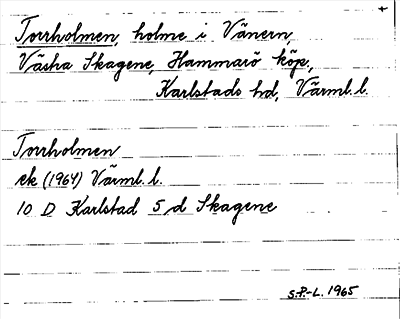 Torrholmen, holme i Vänern,
Västra Skagene, Hammarö köp.,
Karlstads hd, Värml. l.
Torrholmen
ek (1964) Värml. l.
10 D Karlstad 5 d Skagene
S.P.-L. 1965